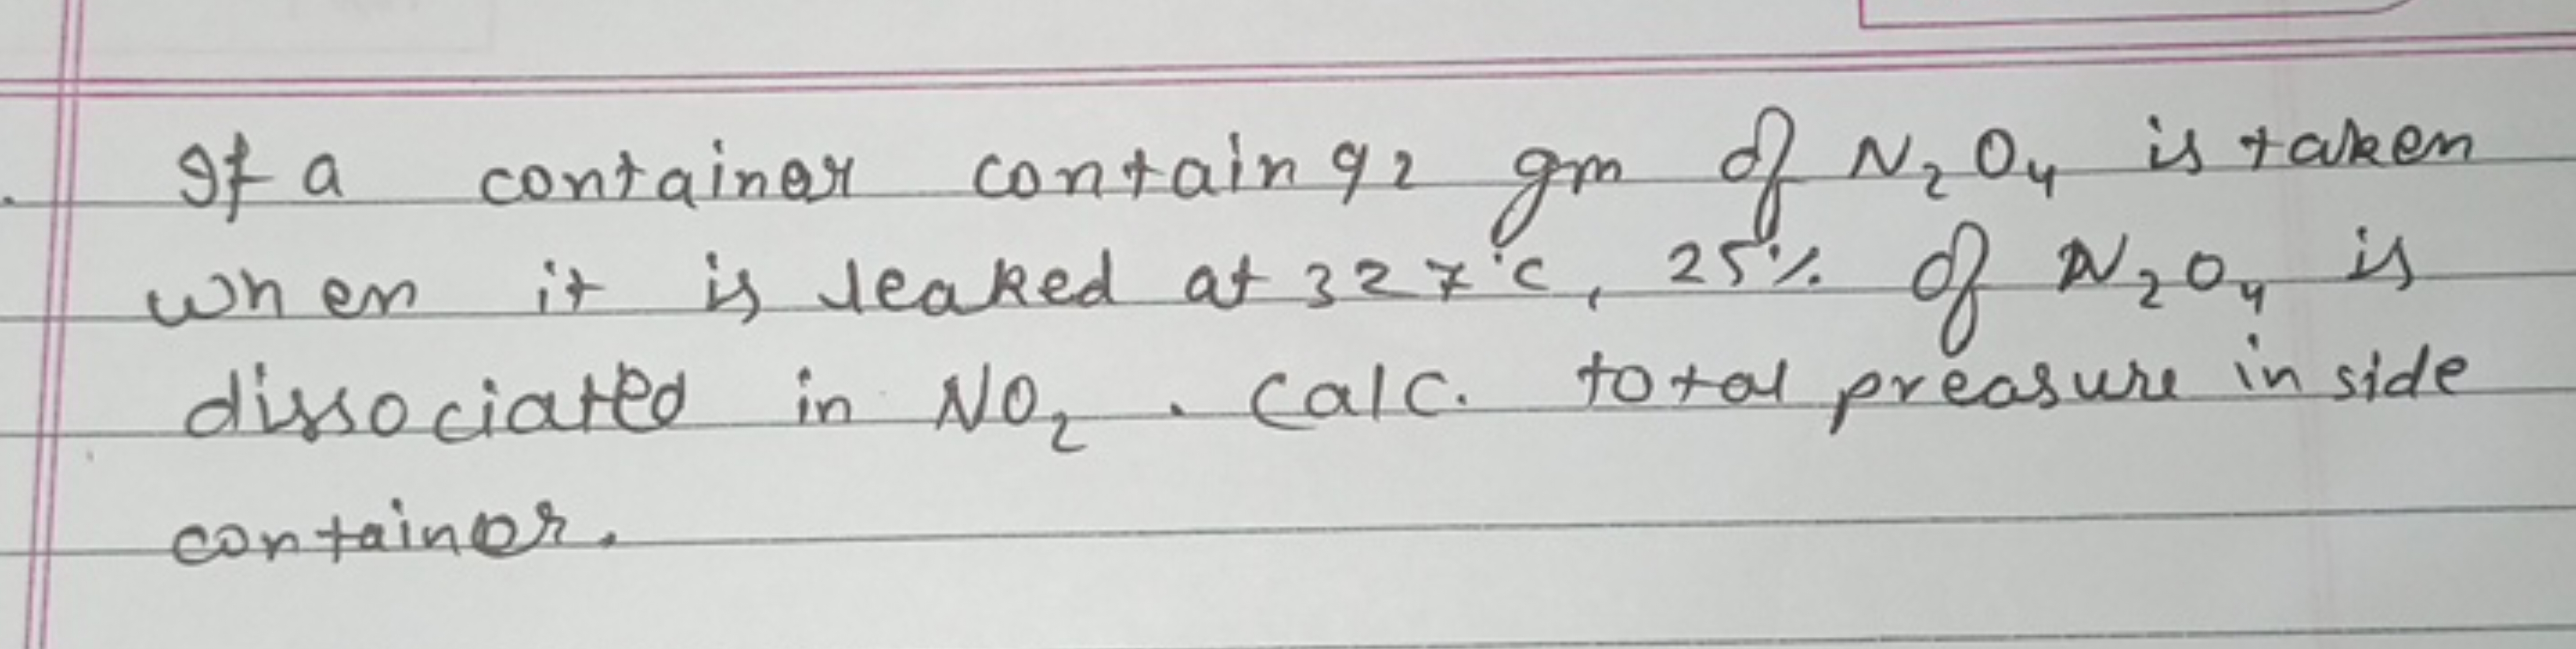 If a container contain 92 gm of N₂O₄ is taken
when it is leaked at 327°C, 25% of N₂O₄ is
dissociated in NO₂. Calc. total preasure inside
container.